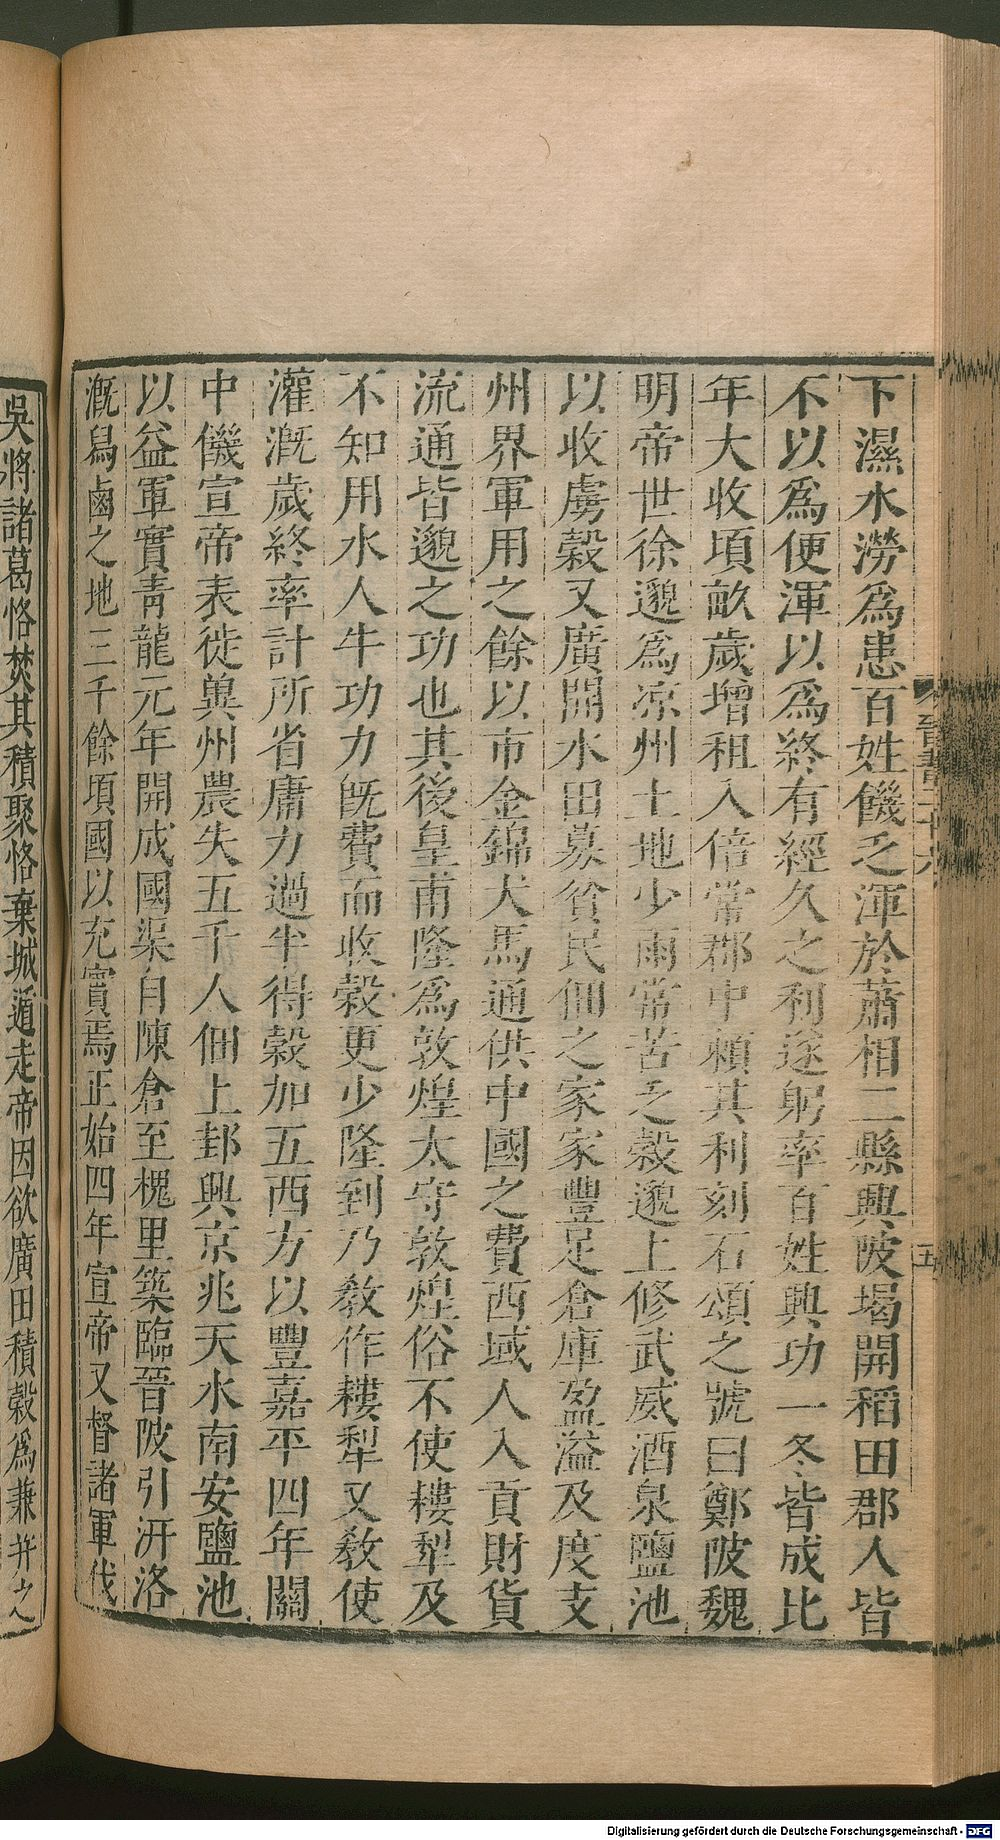 下濕水澇為患百姓饑乏渾於蕭相二縣興陂堨開稻田郡人皆
不以為便渾以為終有經久之利遂躬率百姓興功一冬皆成比
年大收頃畝歲增租入倍常郡中賴其利刻石頌之號曰鄭陂魏
明帝世徐邈為涼州土地少雨常苦乏穀邈上修武威酒泉鹽池
以收虜穀又廣開水田募貧民佃之家家豐足倉庫盈溢及度支
州界軍用之餘以市金錦犬馬通供中國之費西域人入貢財貨
流通皆邈之功也其後皇甫隆為敦煌太守敦煌俗不使耬犁及
不知用水人牛功力既費而收穀更少隆到乃教作耬犁又教使
灌溉歲終率計所省庸力過半得穀加五西方以豐嘉平四年關
中饑宣帝表徙兾州農夫五千人佃上邽興京兆天水南安鹽池
以益軍實青龍元年開成國渠自陳倉至槐里築臨晉陂引汧洛
溉舄鹵之地三千餘頃國以充實焉正始四年宣帝又督諸軍伐
吳將諸葛恪焚其積聚恪棄城遁走帝因欲廣田積穀為兼并之
晉書二十六
五
Digitalisierung gefördert durch die Deutsche Forschungsgemeinschaft - DFG